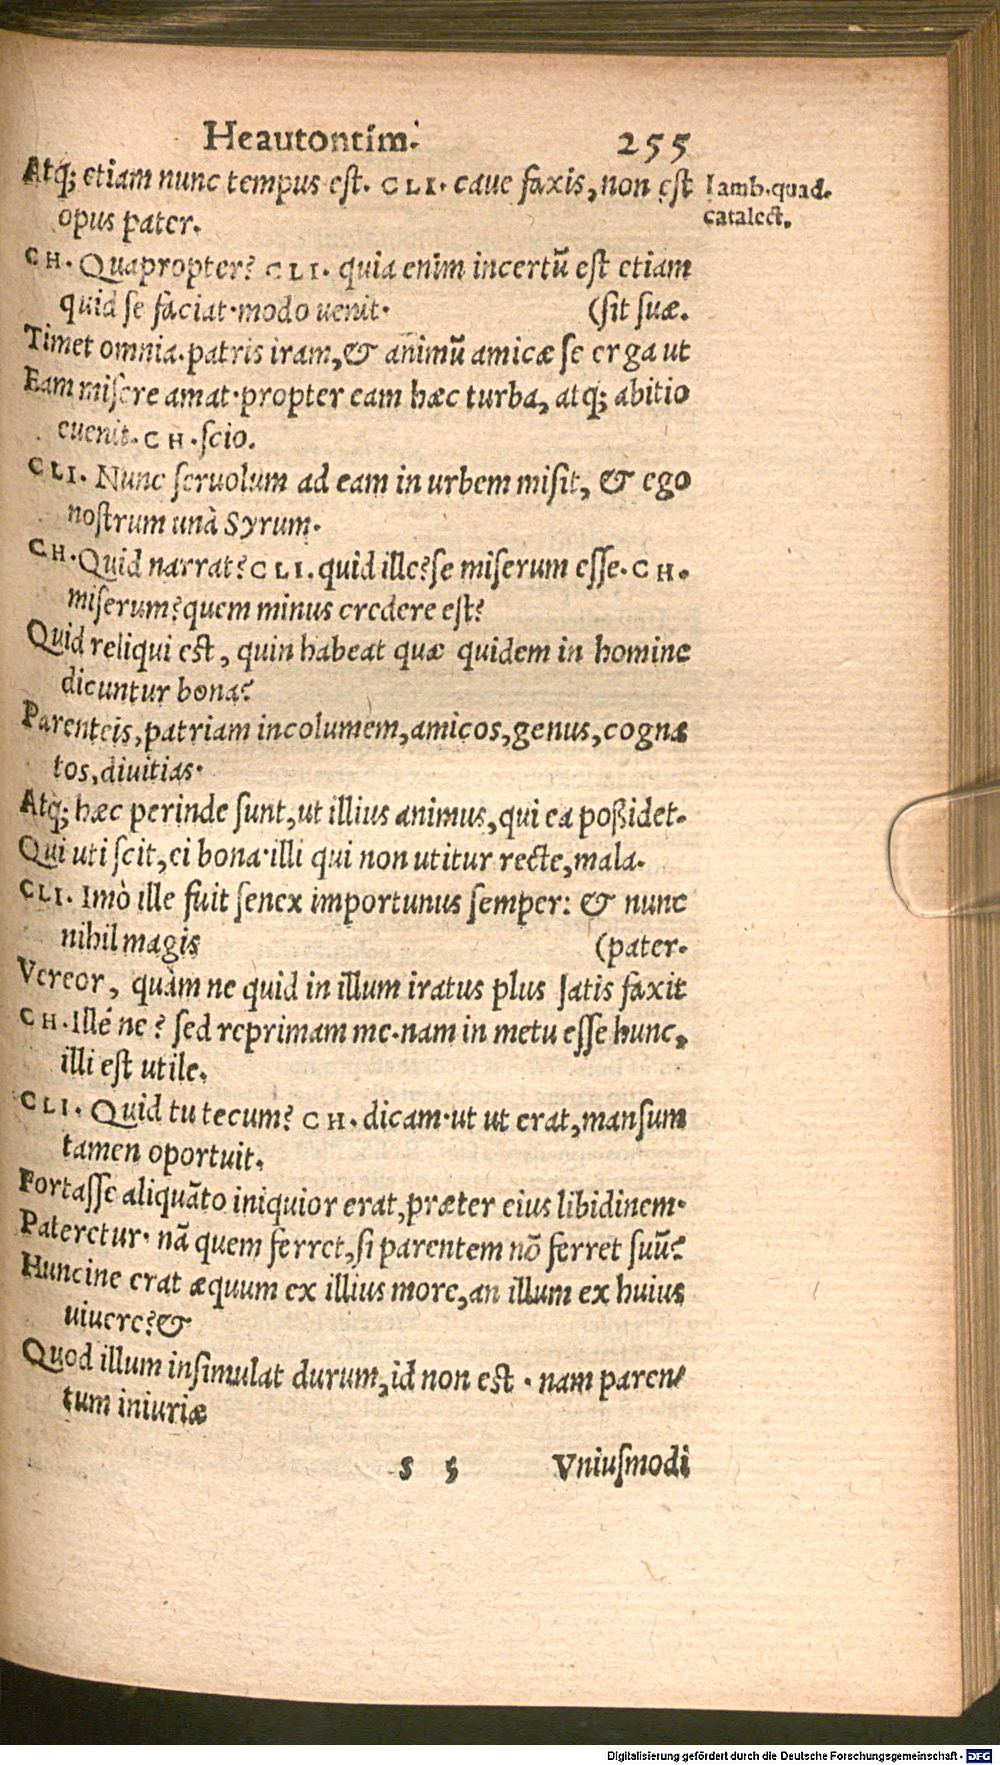 Heautontim. 255
Atq; etiam nunc tempus est. CLI. caue faxis, non est
Iamb. quad.
catalect.
opus pater.
CH. Quapropter? CLI. quia enim incertũ est etiam
quid se faciat. modo uenit. (sit suæ.
Timet omnia. patris iram, & animũ amicæ se erga ut
Eam misere amat. propter eam hæc turba, atq; abitio
euenit. CH. scio.
CLI. Nunc seruolum ad eam in urbem misit, & ego
nostrum unà Syrum.
CH. Quid narrat? CLI. quid ille? se miserum esse. CH.
miserum? quem minus credere est?
Quid reliqui est, quin habeat quæ quidem in homine
dicuntur bona?
Parenteis, patriam incolumem, amicos, genus, cogna
tos, diuitias.
Atq; hæc perinde sunt, ut illius animus, qui ea poßidet.
Qui uti scit, ei bona. illi qui non utitur recte, mala.
CLI. Imò ille fuit senex importunus semper: & nunc
nihil magis (pater.
Vereor, quàm ne quid in illum iratus plus satis faxit
CH. Illé ne? sed reprimam me. nam in metu esse hunc,
illi est utile.
CLI. Quid tu tecum? CH. dicam. ut ut erat, mansum
tamen oportuit.
Fortasse aliquãto iniquior erat, præter eius libidinem.
Pateretur. nã quem ferret, si parentem nõ ferret suũ?
Huncine erat æquum ex illius more, an illum ex huius
uiuere? &
Quod illum insimulat durum, id non est. nam paren-
tum iniuriæ
s 5 Vniusmodi
Digitalisierung gefördert durch die Deutsche Forschungsgemeinschaft - DFG